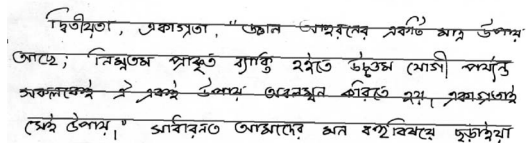 দ্বিতীয়তা, একাগ্রতা, "জ্ঞান আহরনের একটি মাত্র উপায়
আছে; নিম্নতম প্রাকৃত ব্যাক্তি হইতে উচ্চতম যোগী পর্য্যন্ত
সকলকেই ঐ একই উপায় অবলম্বন করিতে হয়, একাগ্রতাই
সেই উপায়।" সাধারনত আমাদের মন বহুবিষয়ে ছড়াইয়া